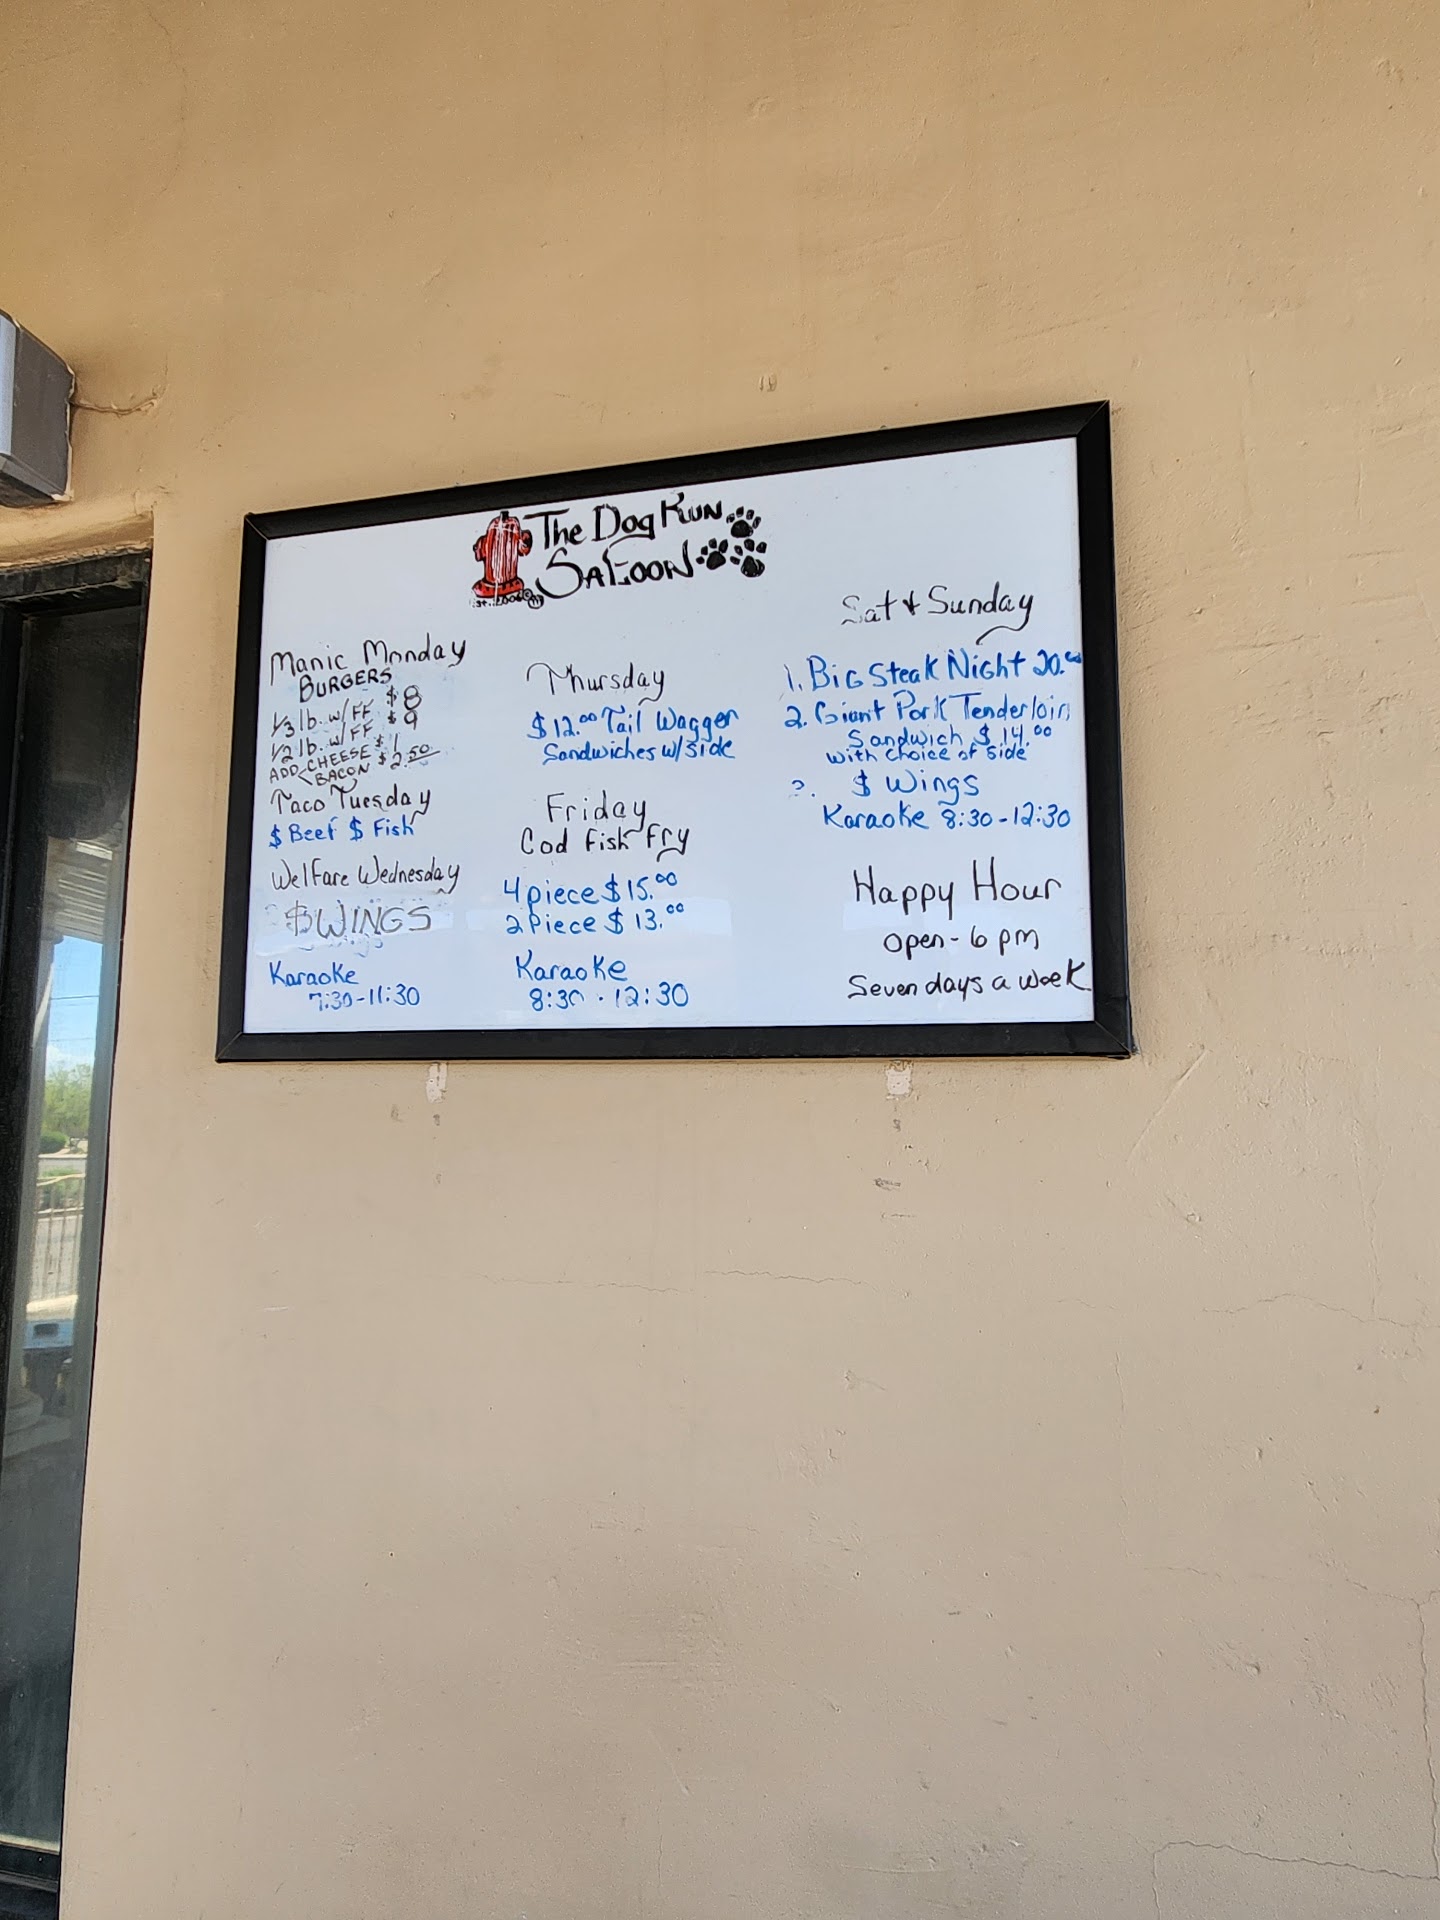 The Dog Run
Saloon
Est. 2006
Manic Monday
BURGERS
1/3 lb. w/ FF $8
1/2 lb. w/ FF $9
ADD CHEESE $1
BACON $2.50
Taco Tuesday
$ Beef $ Fish
Welfare Wednesday
$ WINGS
Karaoke
7:30-11:30
Thursday
$12.00 Tail Wagger
Sandwiches w/side
Friday
Cod Fish Fry
4 piece $15.00
2 Piece $13.00
Karaoke
8:30 - 12:30
Sat & Sunday
1. Big Steak Night 20.00
2. Giant Pork Tenderloin
Sandwich $14.00
with choice of side
3. $ Wings
Karaoke 8:30-12:30
Happy Hour
Open - 6 pm
Seven days a week